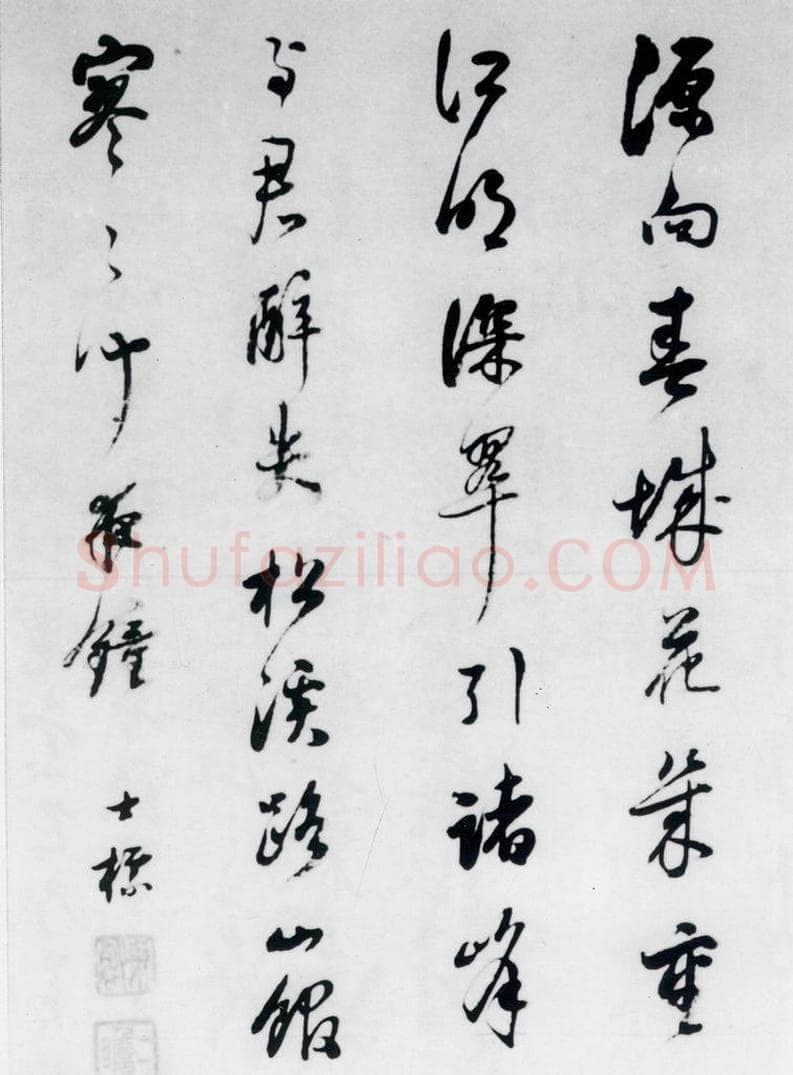 源向春城花幾重
江明深翠引諸峰
与君醉失松溪路山館
寥〻鐘 士標
Shufaziliao.COM